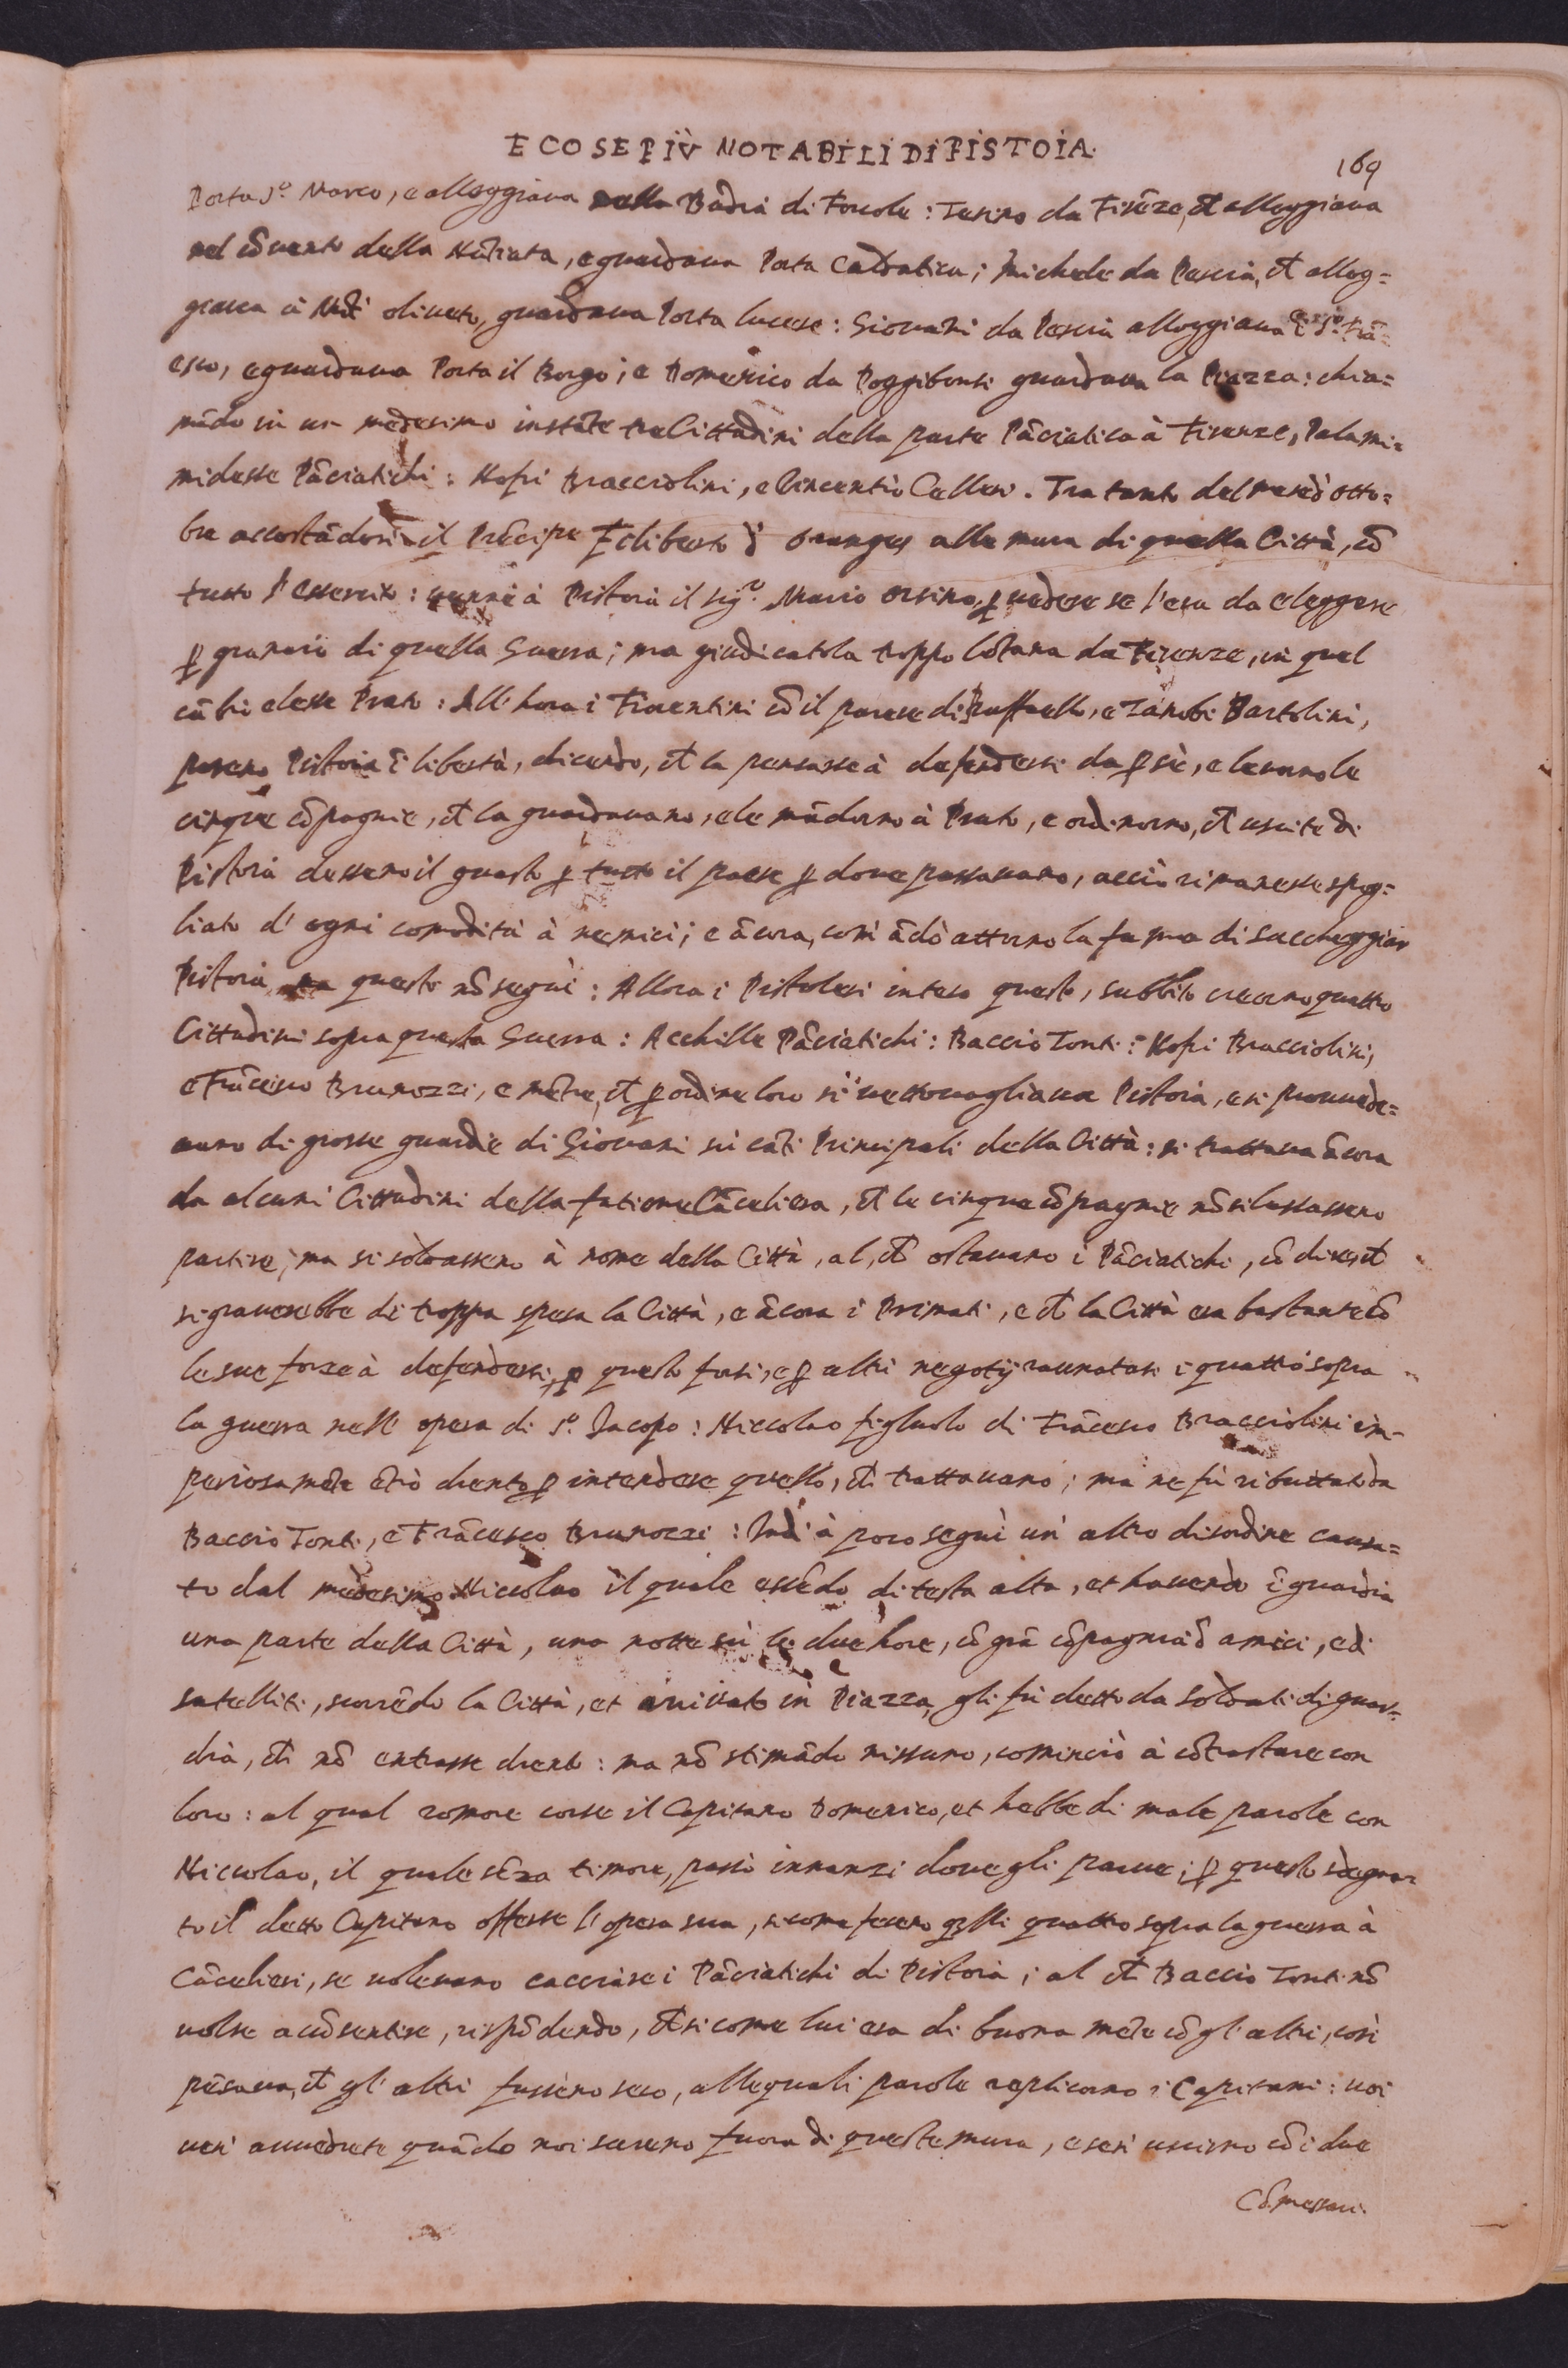 E COSE PIÙ NOTABILI DI PISTOIA.
169
Porta S.º Marco, e alloggiaua nella Badia di Forcole: Tesino da Firēze, ch̄ alloggiaua
nel cōuento della Nūtiata, e guardaua Porta Caldatica; Michele da Pescia, ch̄ allog=
giaua à Mōt' oliueto, guardaua Porta lucese: Giouāni da Pescia alloggiaua ī S.º Frā=
cesco, e guardaua Porta il Borgo; e Domenico da Poggibonsi guardaua la Piazza: chia=
mādo in un medesimo instāte tre Cittadini della parte Pāciatica à Firenze, Palami=
midesse Pāciatichi: Nofri Bracciolini, e Vincentio Cellesi. Tra tanto del mese d' otto=
bre accostādosi il Prēcipe Filiberto d' Oranges alle mura di quella Città, cō
tutto l' essercito: uenne à Pistoia il Sig.ʳ Mario Orsino, ꝑ uedere se l' era da eleggere
ꝑ granaio di quella Guerra; ma giudicatola troppo lōtana da Firenze, in quel
cābio elesse Prato: All' hora i Fiorentini cō il parere di Raffaello, e Zanobi Bartolini,
posero Pistoia ī libertà, dicendo, ch̄ la pensasse à defendersi da ꝑ sè, e leuarole
cinque cōpagnie, ch̄ la guardauano, e le mādorno à Prato, e ordinorno, ch̄ uscite di
Pistoia dessero il guasto ꝑ tutto il paese ꝑ doue passauano, acciò rimanesse spog=
liato d' ogni comodità à nemici; e ācora, così ādò attorno la fama di saccheggiar
Pistoia, ma questo nō seguì: Allora i Pistolesi inteso questo, subbito crearno quattro
Cittadini sopra questa Guerra: Acchille Pāciatichi: Baccio Tonti: Nofri Bracciolini,
e Frācesco Brunozzi, e mētre, ch̄ ꝑ ordine loro si uettouagliaua Pistoia, e si prouuede=
uano di grosse guardie di Giouani sù cāti Principali della Città: si trattaua ācora
da alcuni Cittadini della fatione Cāceliera, ch̄ le cinque cōpagnie nō si lassassero
partire; ma si soldassero à nome della Città, al, ch̄ ostauano i Pāciatichi, cō dire, ch̄
si grauerebbe di troppa spesa la Città, e ācora i Primati, e ch̄ la Città era bastante cō
le sue forze à defendersi, ꝑ questo forsi, e ꝑ altri negotij raunatosi i quattro sopra
la guerra nell' opera di S.º Jacopo: Niccolao figluolo di Frācesco Bracciolini im-
periosamēte ētrò drento ꝑ intendere quello, ch̄ trattauano; ma ne fù ributtato da
Baccio Tonti, e Frācesco Brunozzi: Indi à poco seguì un' altro disordine causa=
to dal medesimo Niccolao il quale essēdo di testa alta, et hauendo ī guardia
una parte della Città, una notte sù le due hore, cō grā cōpagnia d' amici, e di
satelliti, scorrēdo la Città, et arriuato in Piazza, gli fù detto da soldati di guar=
dia, ch̄ nō entrasse drento: ma nō stimādo nissuno, cominciò à cōtrastare con
loro: al qual romore corse il Capitano Domenico, et hebbe di male parole con
Niccolao, il quale sēza timore, passò innanzi doue gli parue; ꝑ questo sdegna=
to il detto Capitano offerse l' opera sua, si come fecero qlli quattro sopra la guerra à
Cācelieri, se uoleuano cacciare i Pāciatichi di Pistoia; al ch̄ Baccio Tonti nō
uolse acōsentire, rispōdendo, ch̄ si come lui era di buona mēte cō gl' altri, così
pēsaua, ch̄ gl' altri fussero seco, alle quali parole replicorno i Capitani: uoi
ueri auuedrete quādo noi saremo fuora di queste mura, e se n' uscirno cō i due
Cōmessari.